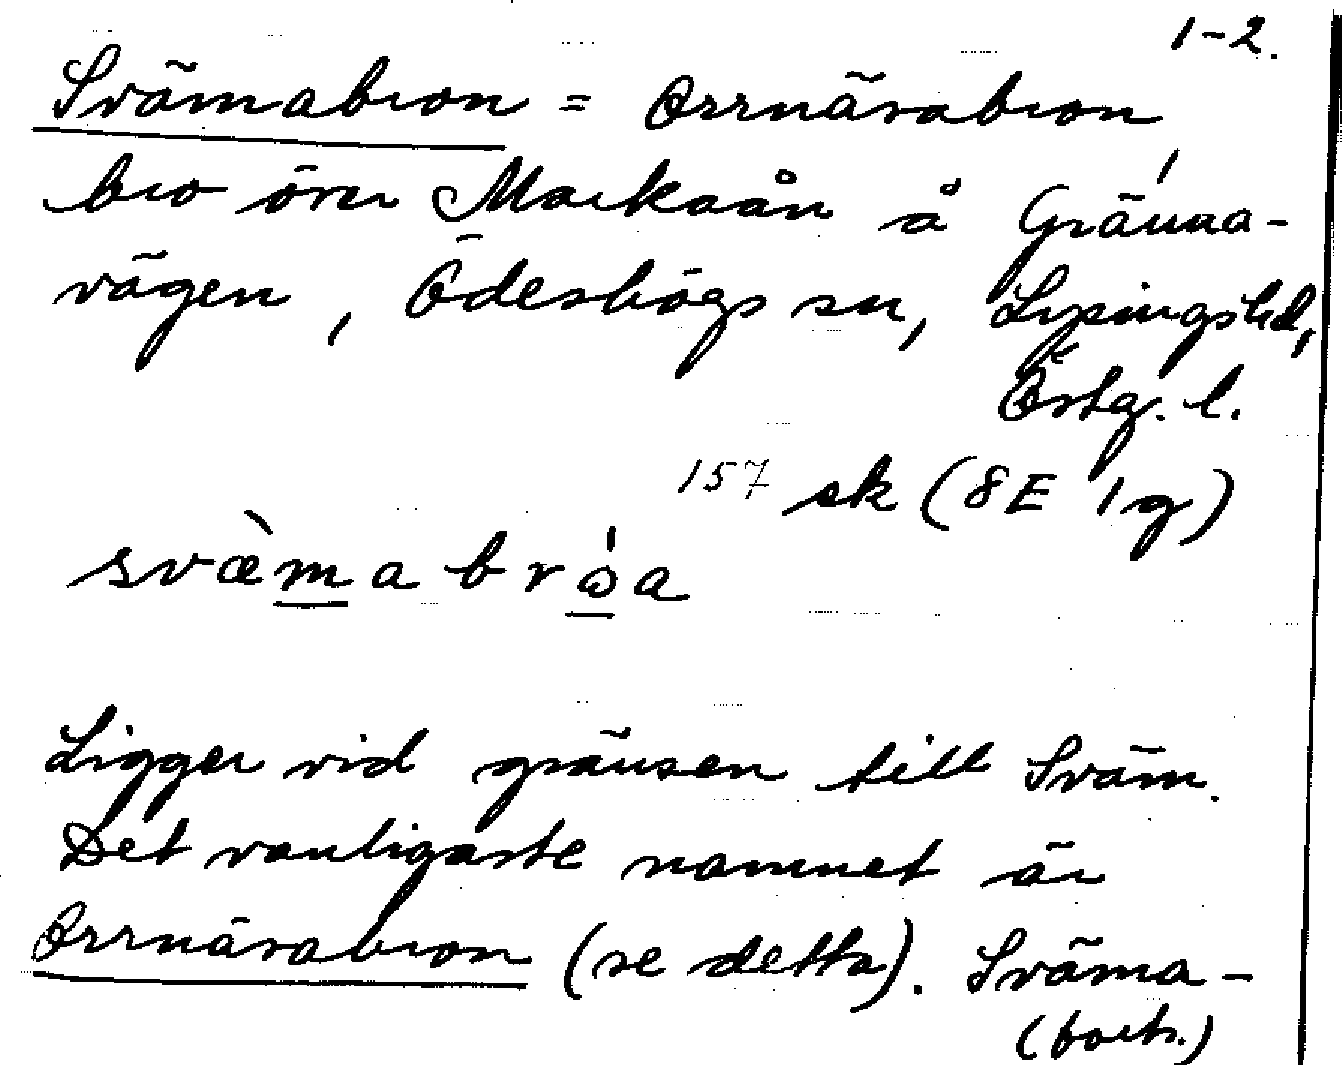 1-2.
Svämabron = Orrnäsabron,
bro över Markaån å Gränna-
vägen, Ödeshögs sn, Lysings hd,
Östg. l.
157 sk (8E 1g)
svæ̀mabrɷ́a
Ligger vid gränsen till Sväm.
Det vanligaste namnet är
Orrnäsabron (se detta). Sväma-
(forts.)